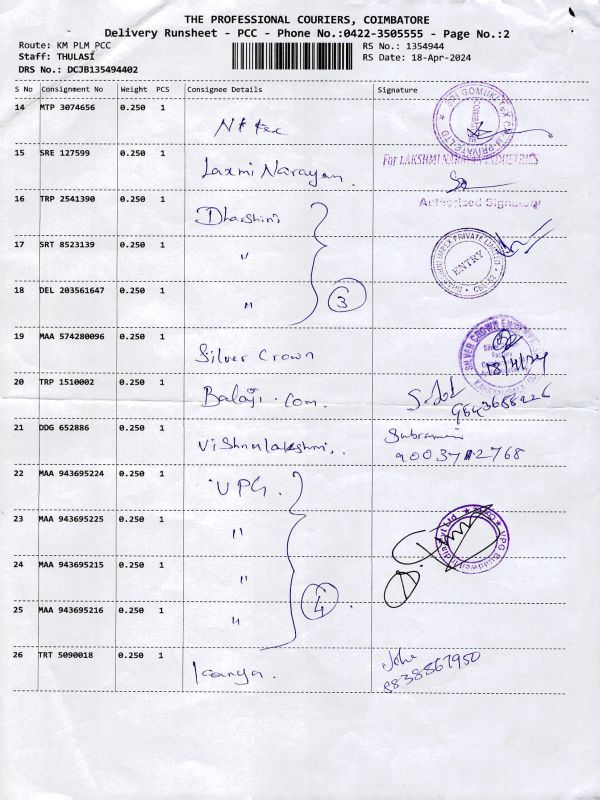 THE PROFESSIONAL COURIERS, COIMBATORE
Delivery Runsheet - PCC - Phone No.:0422-3505555 - Page No.:2
Route: KM PLM PCC RS No.: 1354944
Staff: THULASI RS Date: 18-Apr-2024
DRS No.: DCJB135494402
S No Consignment No Weight PCS Consignee Details Signature
14 MTP 3074656 0.250 1
15 SRE 127599 0.250 1 Laxmi Narayan. For LAKSHMI NARAYAN INDUSTRIES
Authorised Signatory
16 TRP 2541390 0.250 1 Dharshini
17 SRT 8523139 0.250 1 " ENTRY
18 DEL 203561647 0.250 1 " 3
19 MAA 574280096 0.250 1 Silver Crown 18/4/24
20 TRP 1510002 0.250 1 Balaji. Com.
21 DDG 652886 0.250 1 Vishnulakshmi..
22 MAA 943695224 0.250 1 UPG.
23 MAA 943695225 0.250 1 "
24 MAA 943695215 0.250 1 "
25 MAA 943695216 0.250 1 " 4
26 TRT 5090018 0.250 1 8838867950